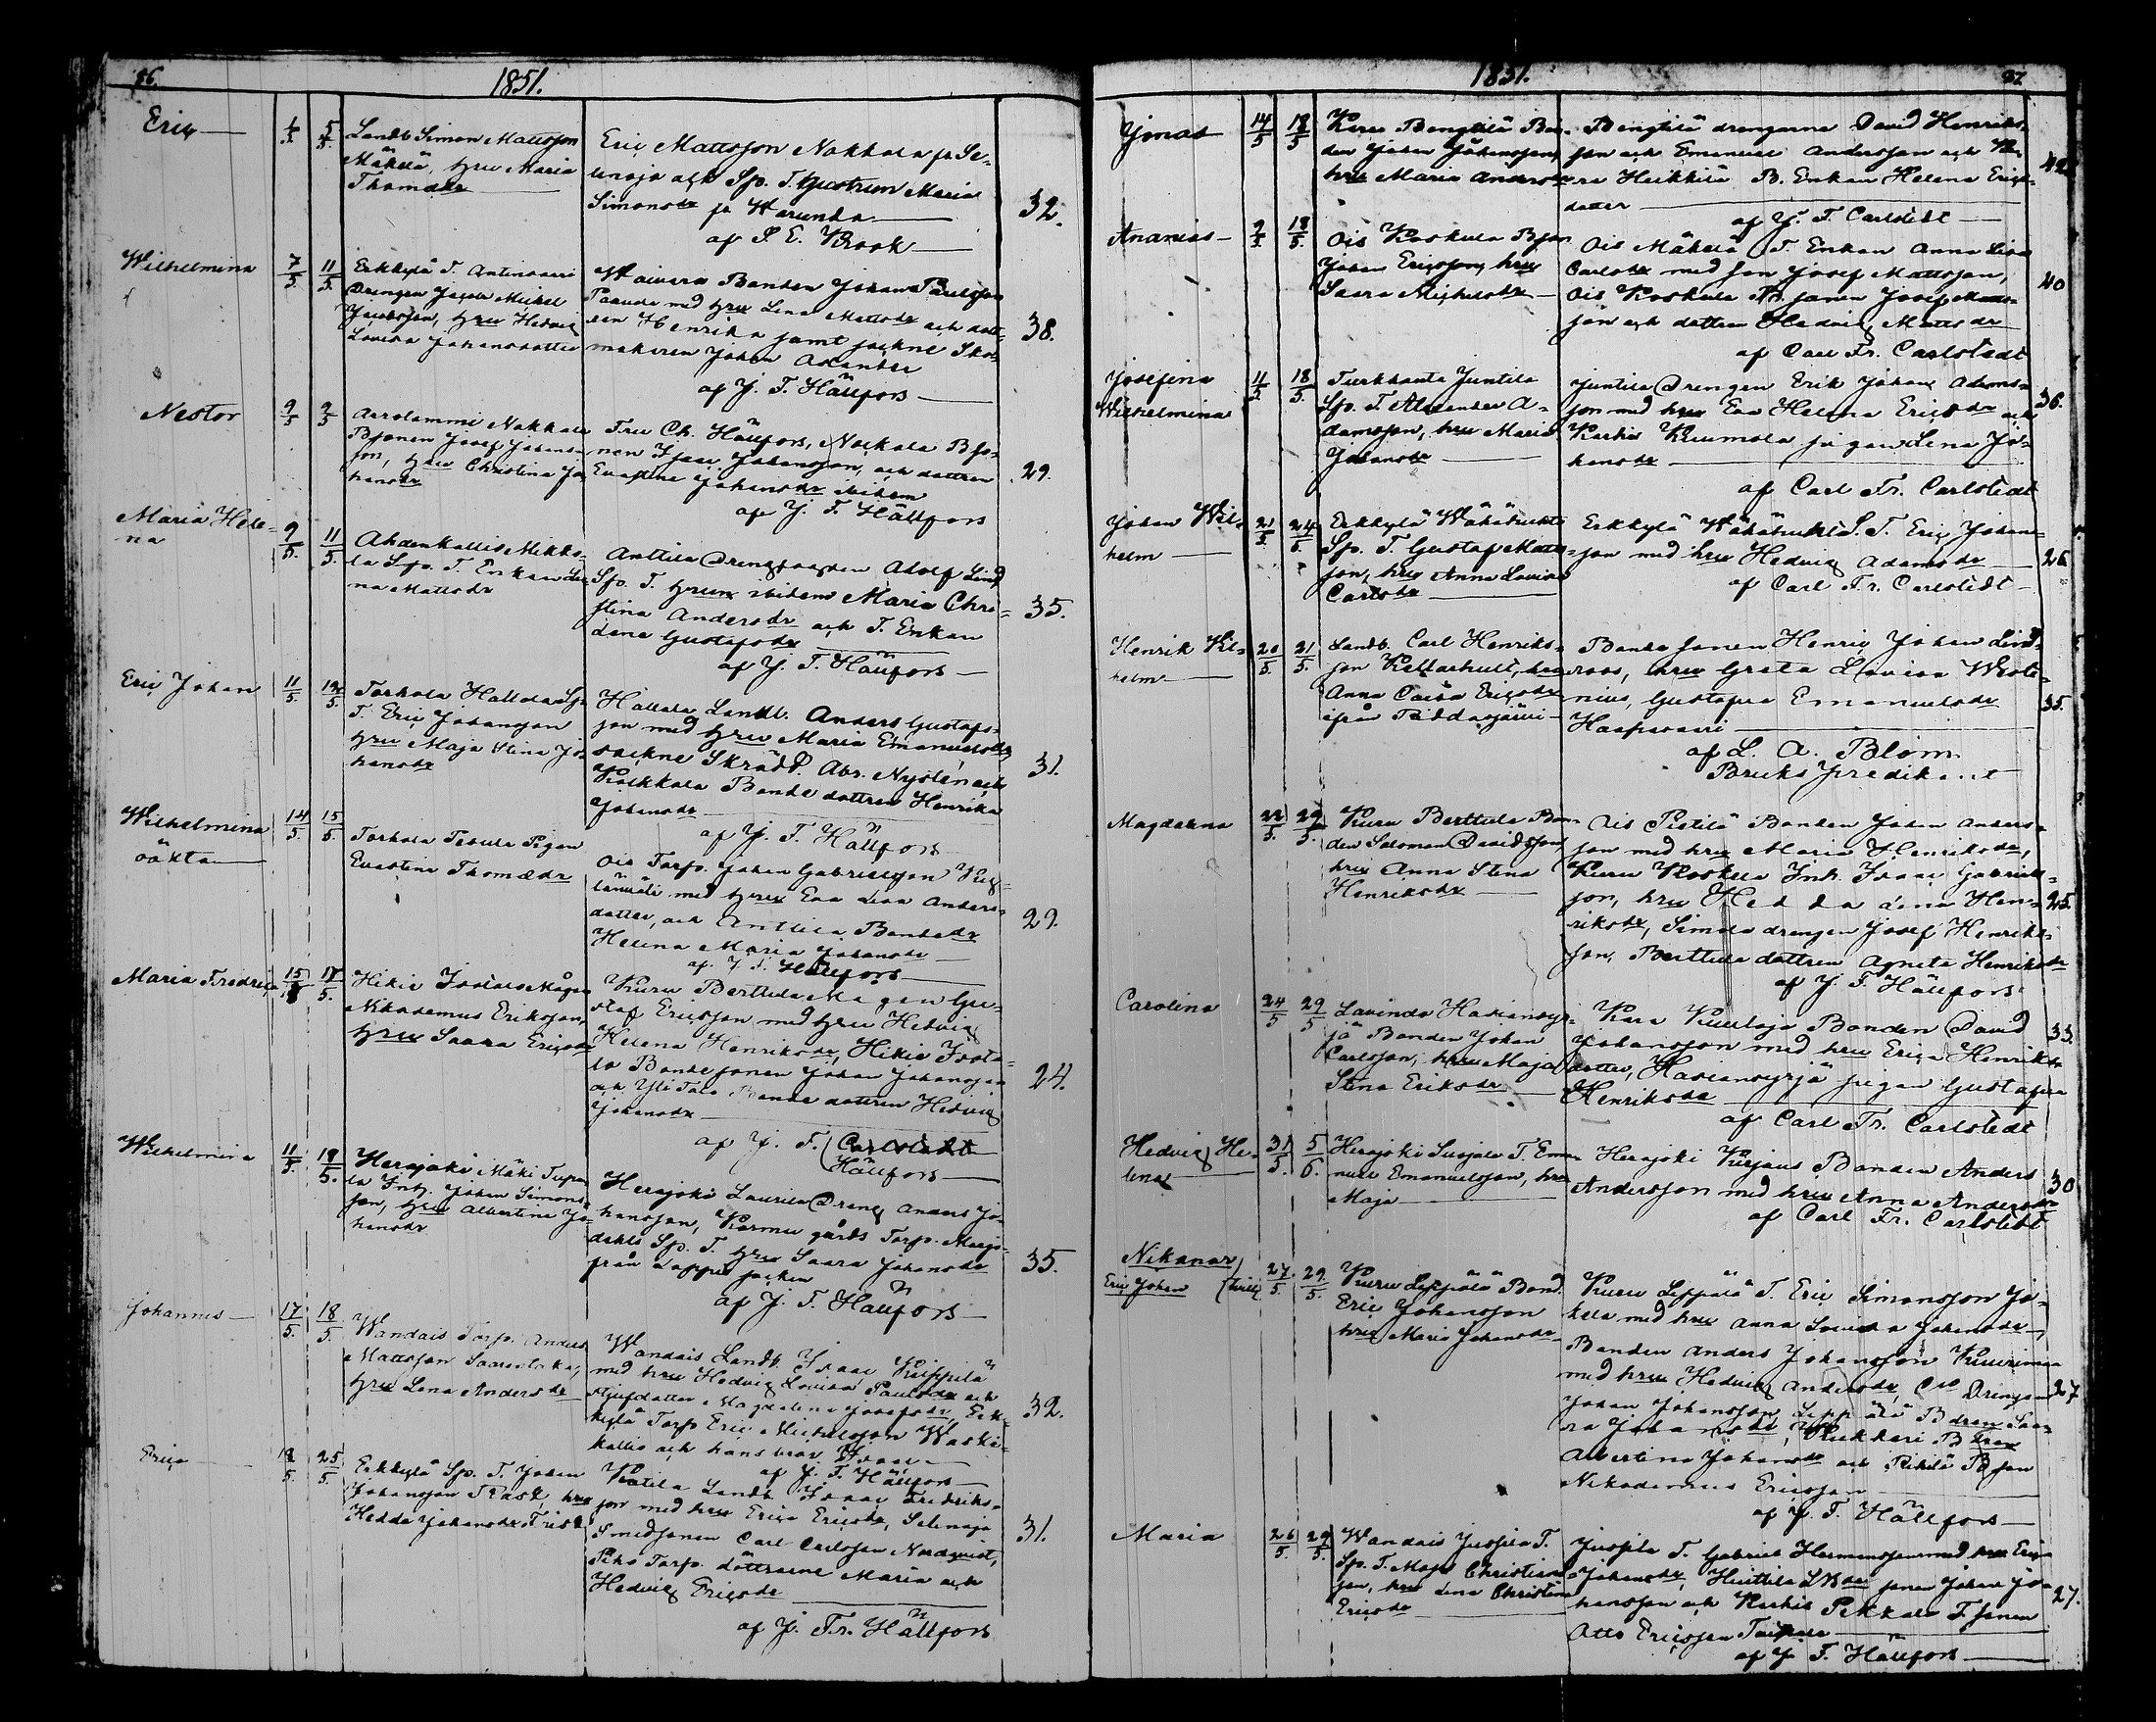 86.
1851.
Eriç
1/5. 5/5.
Landb Simon Mattsson
Mäkelä, hru Maria
Thomædr
Eriç Mattsson Nokkala fr Se-
lenoja och Sp. T. hustrun Maria
Simonsdr fr Warunda
af S. E. Brook
32.
Wilhelmina
7/5. 11/5.
Erkkylä T.
Drengen Jacob Michel
Jacobsson, hru Hedvig
Lovisa Johansdotter
Bonden Johan Paulsson
med hru Lena Mattsdr och dott-
ren Henrika samt sockne Sko-
makeren Johan
af J. T. Hällfors
38.
Nestor
9/5 9/5
Aarolammi Nokkala
Bsonen Josef Johans-
son, hru Christina Jo
hansdr
Fru Ch. Hällfors, Nockala Bso-
nen Isaac Johansson, och dottren
Evastina Johansdr ibidem
af J. T. Hällfors
29.
Maria Hele-
na
9/5. 11/5.
Ahdenkallio Mikko-
la Sp. T. Enkan Le-
na Mattsdr
Anttila Drengsagden Adolf Lind
Sp. T. hrun ibidem Maria Chri-
stina Andersdr och T. Enkan
Gustafsdr
af J. T. Hällfors
35.
Eriç Johan
11/5. 12/5.
Torhola Hallola Sp.
T. Eriç Johansson
hru Maja Stina Jo-
hansdr
Hallola Landb. Anders Gustafs-
son med hru Maria Emanuelsdr
sockne Skrädd. Abr. Nysten och
Bonde dottren Henrika
Johansdr
af J. T. Hällfors
31.
Wilhelmina
oäkta
14/5. 15/5.
Torhola Pigan
Evastina Thomædr
Ois Torp. Johan Gabrielsson
med hru Eva Lisa Anders-
dotter, och Anttila Bondedr
Helena Maria Johansdr
af J. T. Hällfors
29.
Maria Fredriça
15/5 18/5.
Hikie Måger
Nikodemus Eriksson,
hru Saara Ericsdr
Kuru Berttula Magen Gu-
staf Ericsson med hru Hedvig
Helena Henriksdr, Hikie
la Bondesonen Johan Johansson
och Bonde dottren Hedvig
Johansdr
af J. T. Carlstedt
Hällfors
24.
Wilhelmina
11/5. 18/5.
Herajoki Mäki
la Inh. Johan Simons-
son, hru Albertina Jo-
hansdr
Herajoki Laurila Dreng Anders Jo-
hansson, Kormu gårds Torp.
Sp. T. hru Saara Johansdr
från Loppis socken
af J. T. Hällfors
35.
Johannes
17/5. 18/5.
Wandais Torp. Anders
Mattsson
hru Lena Andersdr
Wandais Landb. Isaac Kuppilä
med hru Hedvig Lovisa Paulsdr och
stjufdotter Magdalena Josefsdr, Erk-
kylä Torp. Eric Michelsson
kallio och hans bror Isaac
af J. T. Hällfors
32.
Eriça
18/5 25/5.
Erkkylä Sp. T. Johan
Johansson Rask, hru
Hedda Johansdr Frisk
Landb Isaac Fredriks-
son med hru Eriça Ericsdr, Selenoja
Smedsonen Carl Carlsson Nordqvist,
Torp. döttrarne Maria och
Hedvig Ericsdr
af J. Fr. Hällfors
31.
1851.
87
Jonas
14/5 18/5
Karu Bengtilä Bon-
den Johan Johansson,
hru Maria Andersdr
Bengtilä drengarne David Henriks-
son och Emanuel Andersson och Ka-
ra Heikkilä B. Enkan Helena Erics-
dotter
af J. T. Carlstedt
42
Ananias
9/5. 18/5.
Ois Koskula Bson
Johan Ericsson, hru
Saara Michelsdr
Ois Mäkelä T. Enkan Anna Lisa
Carlsdr med son Josef Mattsson,
Ois Koskula B. sonen Josef Matts-
son och dottren Hedvig Mattsdr
af Carl Fr. Carlstedt
40
Josefina
Wilhelmina
11/5. 18/5.
Turkhauta Juntila
Sp. T. Alexander A-
damsson, hru Maria
Johansdr
Juntila Drengen Erik Johan Adams-
son med hru Eva Helena Ericsdr och
Karhi Kuumola pigan Lena Jo-
hansdr
af Carl Fr. Carlstedt
36.
Johan Wil-
helm
21/5. 24/5.
Erkkylä Wähähuhta
Sp. T. Gustaf Matts-
son, hru Anna Lovisa
Carlsdr
Erkkylä Wähähuhta S. T. Eriç Johans-
son med hru Hedvig Adamsdr
af Carl Fr. Carlstedt
26
Henrik Wil-
helm
20/5. 21/5.
Landb. Carl Henriks-
son hru
Anna Caisa Ericsdr
ifrån
Bondesonen Henriç Johan Lind-
roos, hru Greta Lovisa Weste-
nius, Gustafva Emanuelsdr
Haapasaari
af L. A. Blom
Bruks predikant
35.
Magdalena
22/5. 29/5.
Kuru Berttula Bon-
den Salomon Davidsson,
hru Anna Stina
Henriksdr
Ois Pistilä Bonden Johan Anders-
son med hru Maria Henriksdr,
Kuru Koskela Inh. Isaac Gabriels-
son, hru Hedda Lena Hen-
riksdr, Simola drengen Josef Henriks-
son, Berttula dottren Agneta Henriksdr
af J. T. Hällfors
25.
Carolina
24/5 29/5
Lavinda Hakiansyr-
jä Bonden Johan
Carlsson, hru Maja
Stina Eriksdr
Kara Kuuloja Bonden David
Johansson med hru Eriça Henriks-
dotter, Hakiansyrjä pigan Gustafva
Henriksdr
af Carl Fr. Carlstedt
33.
Hedvig He-
lena
31/5. 5/6.
Herajoki T. Ema-
nuel Emanuelsson, hru
Maja
Herajoki Bonden Anders
Andersson med hru Anna Andersdr
af Carl Fr. Carlstedt
30
Nikanor
Eric Johan (tvill)
27/5. 29/5.
Kuru Leppälä Bond.
Eric Johansson
hru Maria Johansdr
Kuru Leppälä T. Eric Simonsson Jo-
kela med hru Anna Lovisa Johansdr
Bonden Anders Johansson
med hru Hedvig Andersdr, Drengen
Johan Johansson, Leppälä Bdren Saa-
ra Johansdr, Bdren
Albertina Johansdr och B son
Nikodemus Ericsson
af J. T. Hällfors
27
Maria
26/5. 29/5.
Wandais T.
Sp. T. Maji Christians-
son, hru Lena Christina
Ericsdr
T. Gabriel Hermansson med hru Eriça
Johansdr, Huttila sonen Johan Jo-
hansson och Karhi Pekkala T. sonen
Otto Ericsson
af J. T. Hällfors
27.